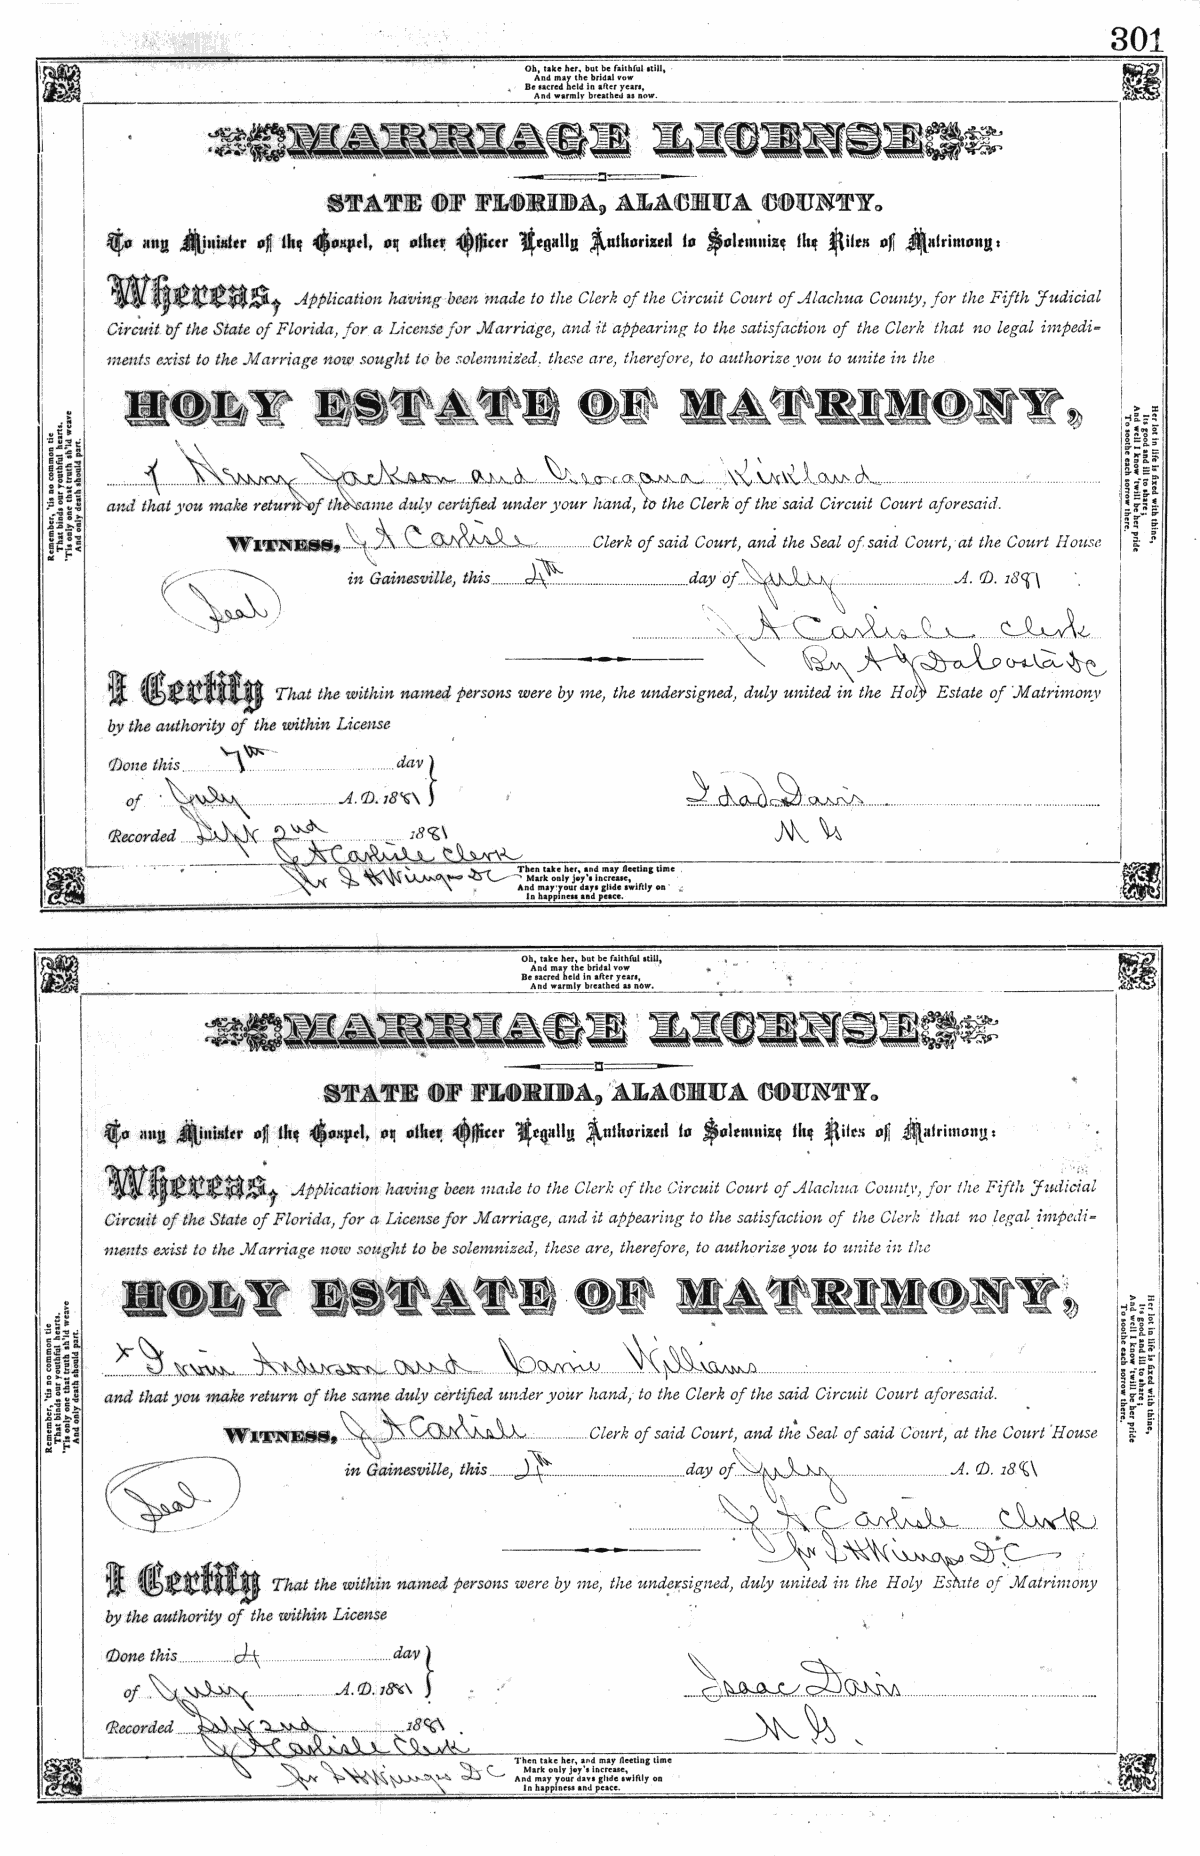 301
Oh, take her, but be faithful still,
And may the bridal vow
Be sacred held in after years,
And warmly breathed as now.
MARRIAGE LICENSE
STATE OF FLORIDA, ALACHUA COUNTY.
To any Minister of the Gospel, or other Officer Legally Authorized to Solemnize the Rites of Matrimony:
Whereas, Application having been made to the Clerk of the Circuit Court of Alachua County, for the Fifth Judicial
Circuit of the State of Florida, for a License for Marriage, and it appearing to the satisfaction of the Clerk that no legal impedi-
ments exist to the Marriage now sought to be solemnized, these are, therefore, to authorize you to unite in the
HOLY ESTATE OF MATRIMONY,
Henry Jackson and Georgana Kirkland
and that you make return of the same duly certified under your hand, to the Clerk of the said Circuit Court aforesaid.
WITNESS, J A Carlisle Clerk of said Court, and the Seal of said Court, at the Court House
in Gainesville, this 4th day of July A. D. 1881
Seal
J A Carlisle Clerk
By A J DaCosta DC
I Certify That the within named persons were by me, the undersigned, duly united in the Holy Estate of Matrimony
by the authority of the within License
Done this 7th day
of July A. D. 1881
Davis
Recorded Sept 2nd 1881
M G
J A Carlisle Clerk
pr S H Wienges DC
Then take her, and may fleeting time
Mark only joy's increase,
And may your days glide swiftly on
In happiness and peace.
Remember, 'tis no common tie
That binds our youthful hearts,
'Tis only one that truth sh'ld weave
And only death should part.
Her lot in life is fixed with thine,
Its good and ill to share;
And well I know 'twill be her pride
To soothe each sorrow there.
Oh, take her, but be faithful still,
And may the bridal vow
Be sacred held in after years,
And warmly breathed as now.
MARRIAGE LICENSE
STATE OF FLORIDA, ALACHUA COUNTY.
To any Minister of the Gospel, or other Officer Legally Authorized to Solemnize the Rites of Matrimony:
Whereas, Application having been made to the Clerk of the Circuit Court of Alachua County, for the Fifth Judicial
Circuit of the State of Florida, for a License for Marriage, and it appearing to the satisfaction of the Clerk that no legal impedi-
ments exist to the Marriage now sought to be solemnized, these are, therefore, to authorize you to unite in the
HOLY ESTATE OF MATRIMONY,
x Irvin Anderson and Carrie Williams
and that you make return of the same duly certified under your hand, to the Clerk of the said Circuit Court aforesaid.
WITNESS, J A Carlisle Clerk of said Court, and the Seal of said Court, at the Court House
in Gainesville, this 4th day of July A. D. 1881
Seal
J A Carlisle Clerk
pr S H Wienges D.C
I Certify That the within named persons were by me, the undersigned, duly united in the Holy Estate of Matrimony
by the authority of the within License
Done this 4 day
of July A. D. 1881
Isaac Davis
Recorded Sept 2nd 1881
M G.
J A Carlisle Clerk
pr S H Wienges D C
Then take her, and may fleeting time
Mark only joy's increase,
And may your days glide swiftly on
In happiness and peace.
Remember, 'tis no common tie
That binds our youthful hearts,
'Tis only one that truth sh'ld weave
And only death should part.
Her lot in life is fixed with thine,
Its good and ill to share;
And well I know 'twill be her pride
To soothe each sorrow there.